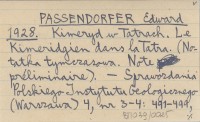 PASSENDORFER Edward
1928. Kimeryd w Tatrach. Le
Kimeridgien dans la Tatra. (No-
tatka tymczasowa. Note
préliminaire). — Sprawozdania
Polskiego Instytutu Geologicznego
(Warszawa) 4, nr 3-4: 491-499,